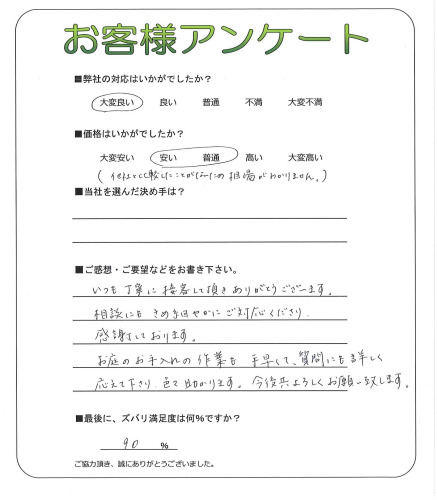 お客様アンケート
■弊社の対応はいかがでしたか？
大変良い 良い 普通 不満 大変不満
■価格はいかがでしたか？
大変安い 安い 普通 高い 大変高い
(他社と比較したことがないため相場がわかりません。)
■当社を選んだ決め手は？
■ご感想・ご要望などをお書き下さい。
いつも丁寧に接客して頂きありがとうございます。
相談にもきめ細やかにご対応くださり
感謝しております。
お庭のお手入れの作業も手早くて、質問にも詳しく
応えて下さり 助かります。今後共よろしくお願い致します。
■最後に、ズバリ満足度は何％ですか？
90 ％
ご協力頂き、誠にありがとうございました。